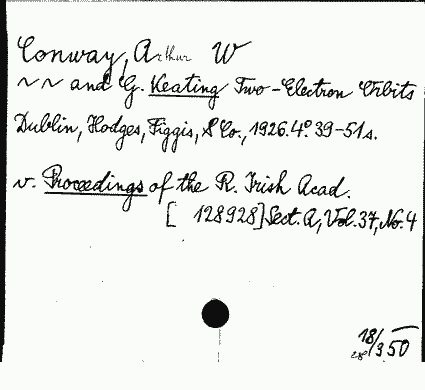 Conway, Arthur W
~ ~ and G. Keating Two-Electron Orbits
Dublin, Hodges, Figgis, & Co., 1926. 4° 39-51 s.
v. Proceedings of the R. Irish Acad.
[ 128928] Sect. A, Vol. 37, No. 4
18/350